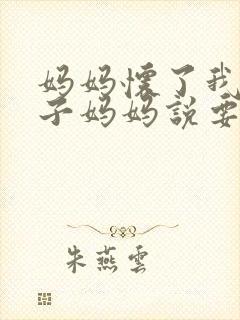 妈妈懷了我
子妈妈説要
朱燕雲